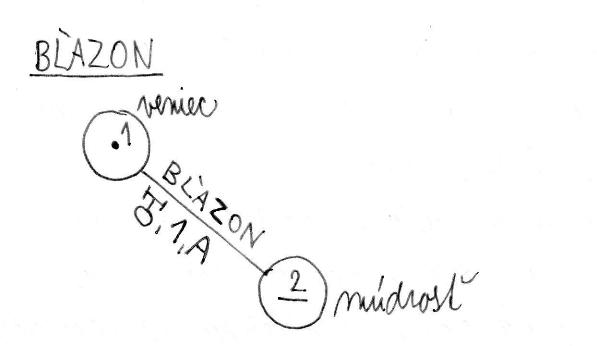 BLÀZON
veniec
1
BLÀZON
1, A
2
múdrosť